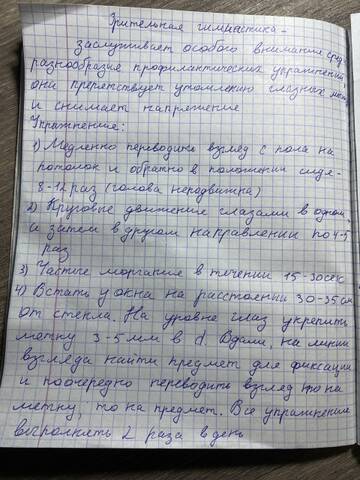 Зрительная гимнастика -
заслуживает особого внимания сред
разнообразия профилактических упражнений
они препятствует утомлению глазных мышц
и снимает напряжение
Упражнение:
1) Медленно переводить взгляд с пола на
потолок и обратно в положении сидя-
8-12 раз (голова неподвижна)
2) Круговые движение глазами в одном,
и затем в другом направлении по 4-5
раз
3) Частые моргание в течении 15-30сек
4) Встать у окна на расстоянии 30-35см
от стекла. На уровне глаз укрепить
метку 3-5мм в d. Вдали, на линии
взгляда найти предмет для фиксации
и поочередно переводить взгляд то на
метку, то на предмет. Все упражнения
выполнять 2 раза в день